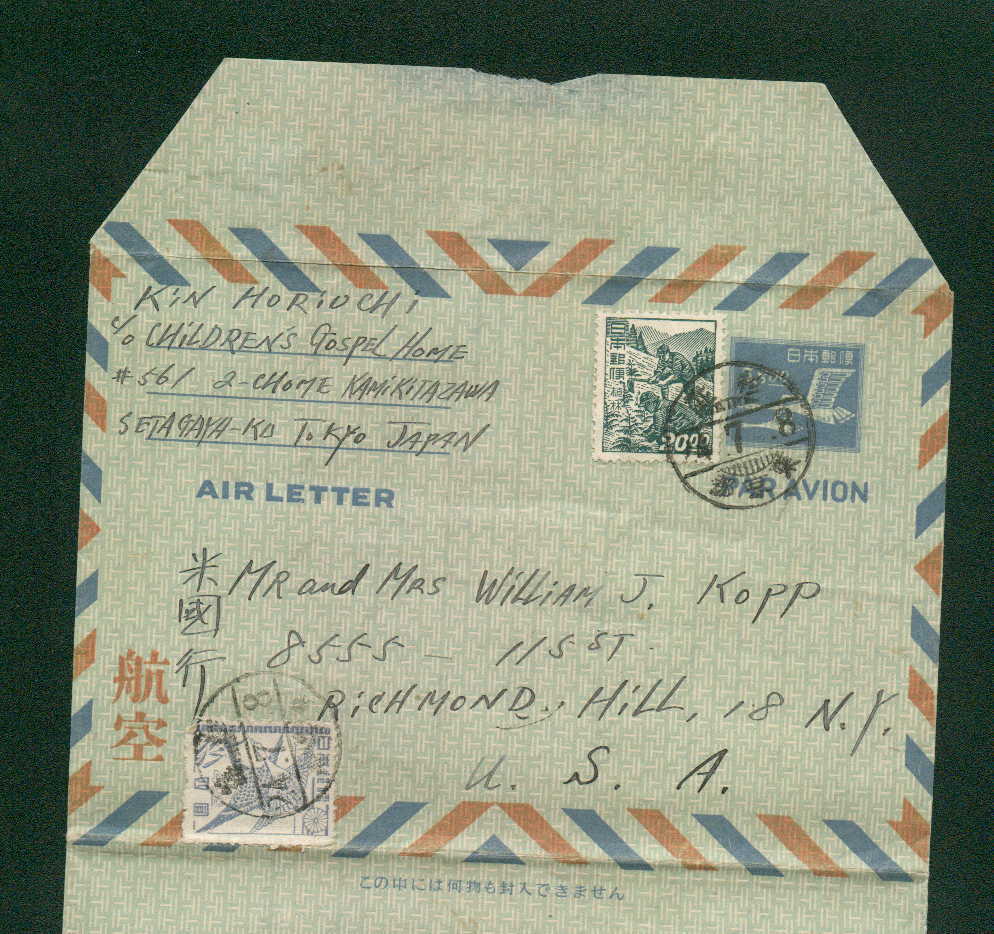 KIN HORIUCHI
c/o CHILDREN'S GOSPEL HOME
#561 2-CHOME KAMIKITAZAWA
SETAGAYA-KU TOKYO JAPAN
日本郵便
20.00
日本郵便
AIR LETTER
PAR AVION
米國行
MR and MRS WILLIAM J. KOPP
8555 - 115 ST.
RICHMOND HILL, 18 N.Y.
U. S. A.
航空
この中には何物も封入できません